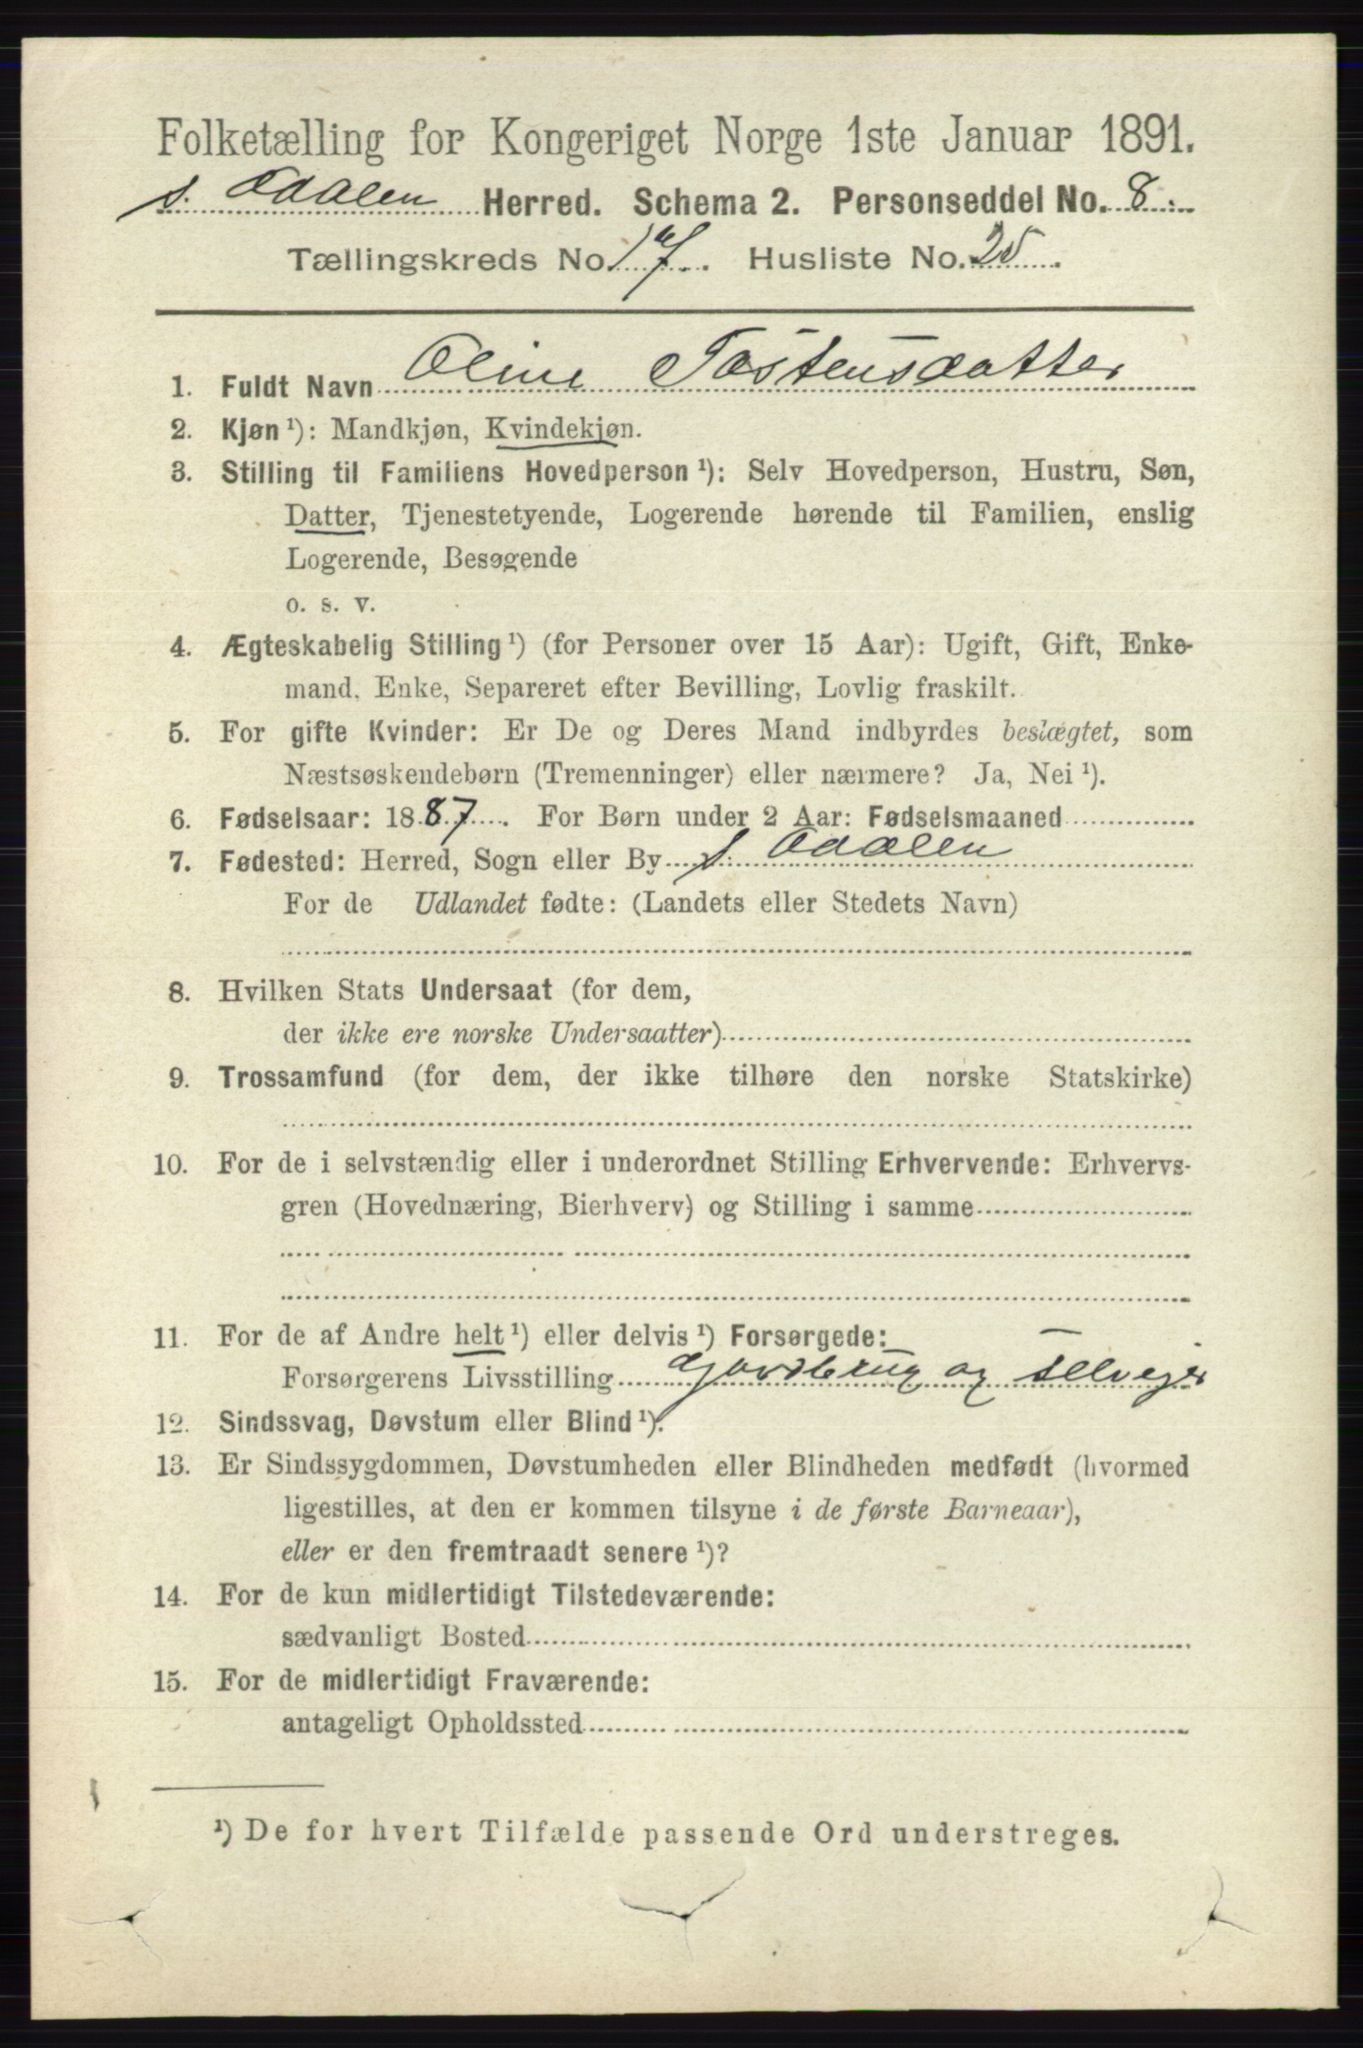 Folketælling for Kongeriget Norge 1ste Januar 1891.
S. Odalen Herred. Schema 2. Personseddel No. 8.
Tællingskreds No. 17. Husliste No. 25.
1. Fuldt Navn Oline Tostensdatter
2. Kjøn ¹): Mandkjøn, Kvindekjøn.
3. Stilling til Familiens Hovedperson ¹): Selv Hovedperson, Hustru, Søn,
Datter, Tjenestetyende, Logerende hørende til Familien, enslig
Logerende, Besøgende
o. s. v.
4. Ægteskabelig Stilling ¹) (for Personer over 15 Aar): Ugift, Gift, Enke-
mand, Enke, Separeret efter Bevilling, Lovlig fraskilt.
5. For gifte Kvinder: Er De og Deres Mand indbyrdes beslægtet, som
Næstsøskendebørn (Tremenninger) eller nærmere? Ja, Nei ¹).
6. Fødselsaar: 1887. For Børn under 2 Aar: Fødselsmaaned
7. Fødested: Herred, Sogn eller By S. Odalen
For de Udlandet fødte: (Landets eller Stedets Navn)
8. Hvilken Stats Undersaat (for dem,
der ikke ere norske Undersaatter)
9. Trossamfund (for dem, der ikke tilhøre den norske Statskirke)
10. For de i selvstændig eller i underordnet Stilling Erhvervende: Erhvervs-
gren (Hovednæring, Bierhverv) og Stilling i samme
11. For de af Andre helt ¹) eller delvis ¹) Forsørgede:
Forsørgerens Livsstilling Gardbrug og Selvejer
12. Sindssvag, Døvstum eller Blind ¹).
13. Er Sindssygdommen, Døvstumheden eller Blindheden medfødt (hvormed
ligestilles, at den er kommen tilsyne i de første Barneaar),
eller er den fremtraadt senere ¹)?
14. For de kun midlertidigt Tilstedeværende:
sædvanligt Bosted
15. For de midlertidigt Fraværende:
antageligt Opholdssted
¹) De for hvert Tilfælde passende Ord understreges.